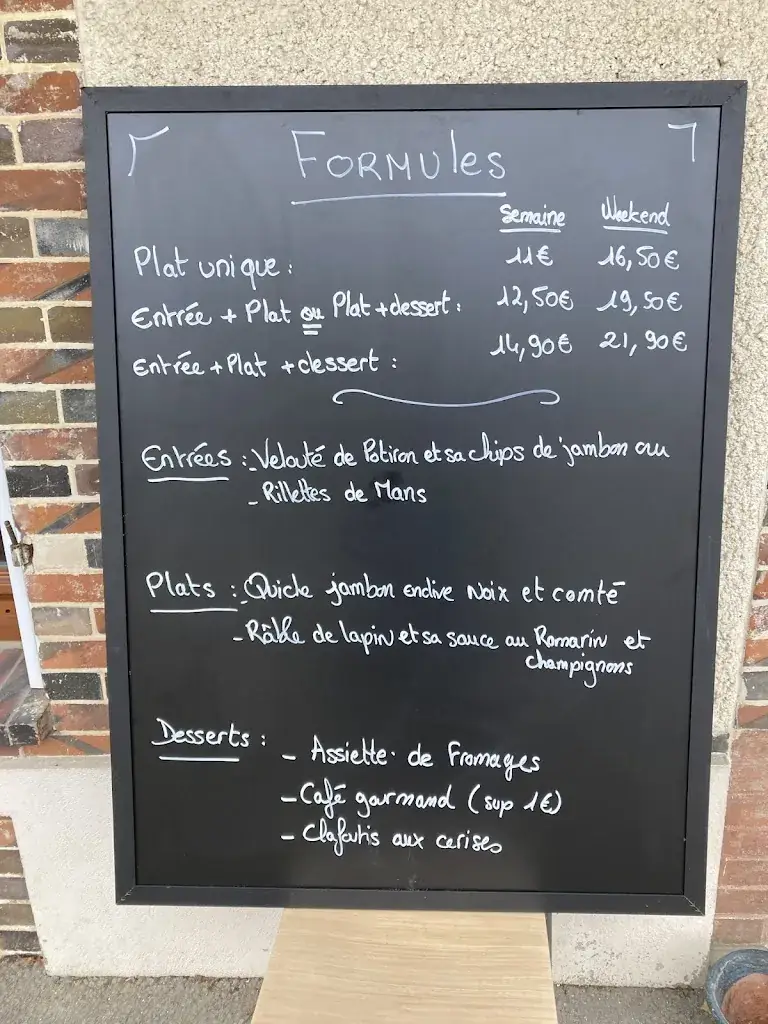 Formules
Semaine Weekend
Plat unique : 11€ 16,50€
Entrée + Plat ou Plat + dessert : 12,50€ 19,50€
Entrée + Plat + dessert : 14,90€ 21,90€
Entrées : - Velouté de Potiron et sa chips de jambon ou
- Rillettes de Mans
Plats : - Quiche jambon endive Noix et comté
- Râble de lapin et sa sauce au Romarin et
champignons
Desserts :
- Assiette de Fromages
- Café gourmand (sup 1€)
- Clafoutis aux cerises